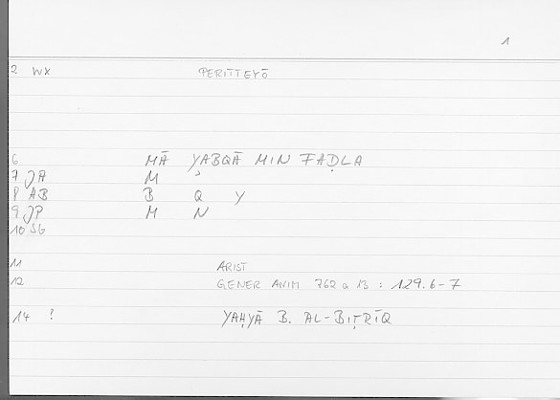 1
2 WX PERITTEYŌ
6 MĀ YABQĀ MIN FAḌLA
7 JA M ʾ
8 AB B Q Y
9 JP M N
10 SG
11 ARIST
12 GENER ANIM 762 a 13 : 129.6-7
14 ? YAḤYĀ B. AL-BIṬRĪQ